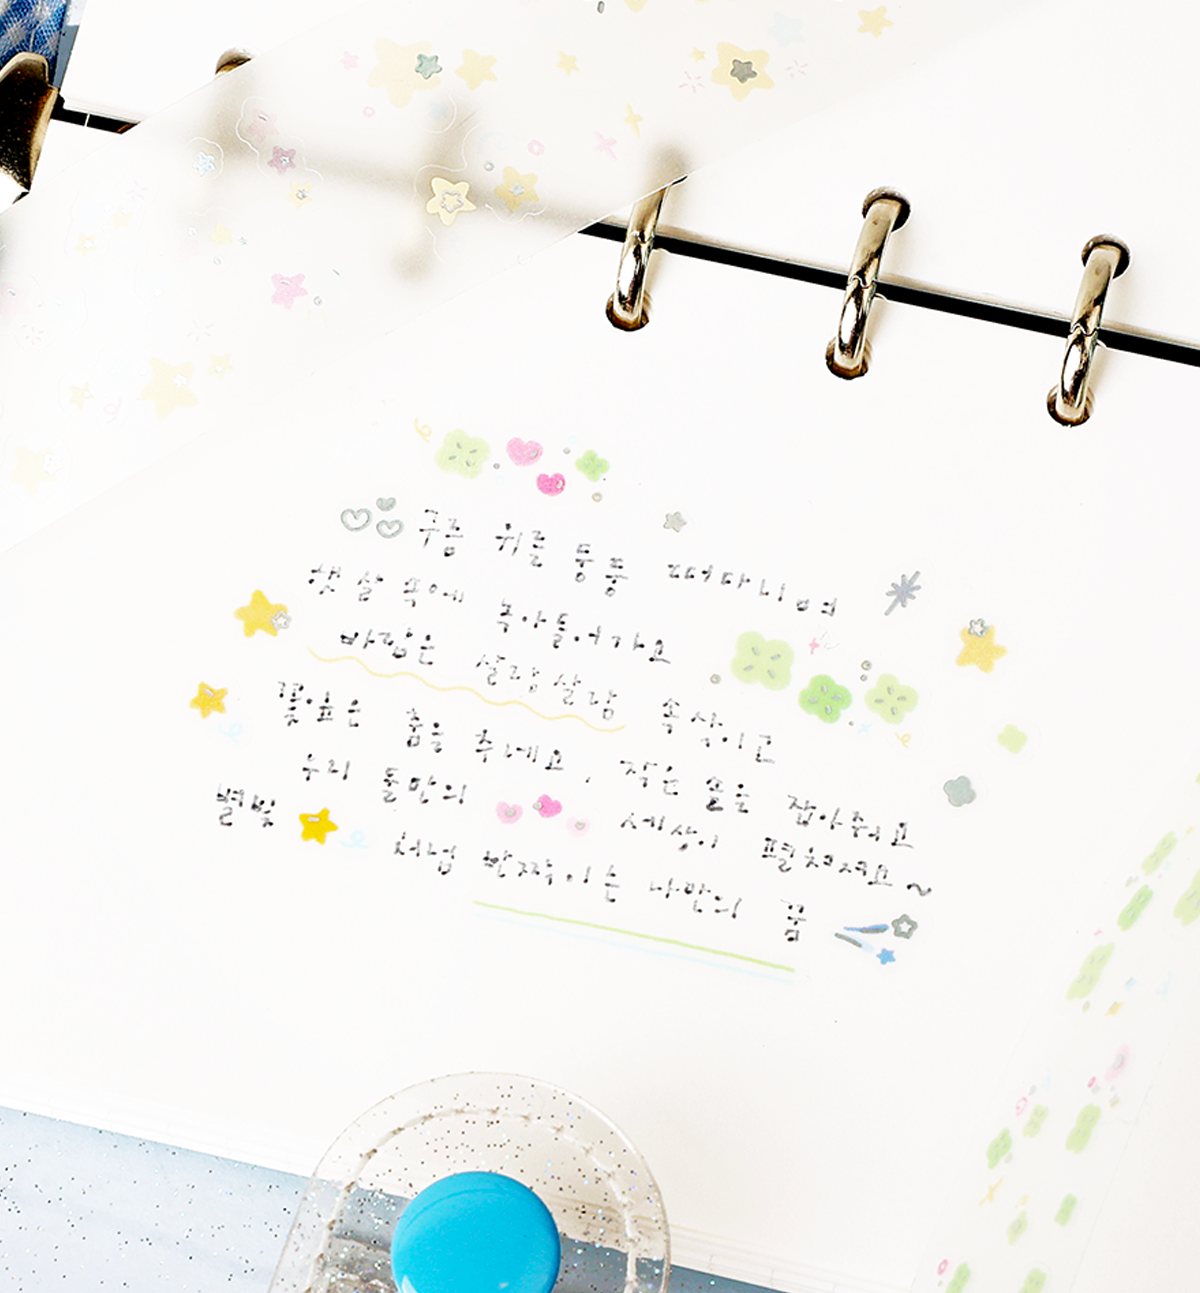 구름 위를 둥둥 떠다니며
햇살 속에 녹아들어가요
바람은 살랑살랑 속삭이고
꽃잎은 춤을 추네요, 작은 손을 잡아줘요
우리 둘만의 세상이 펼쳐져요~
별빛처럼 반짝이는 나만의 꿈